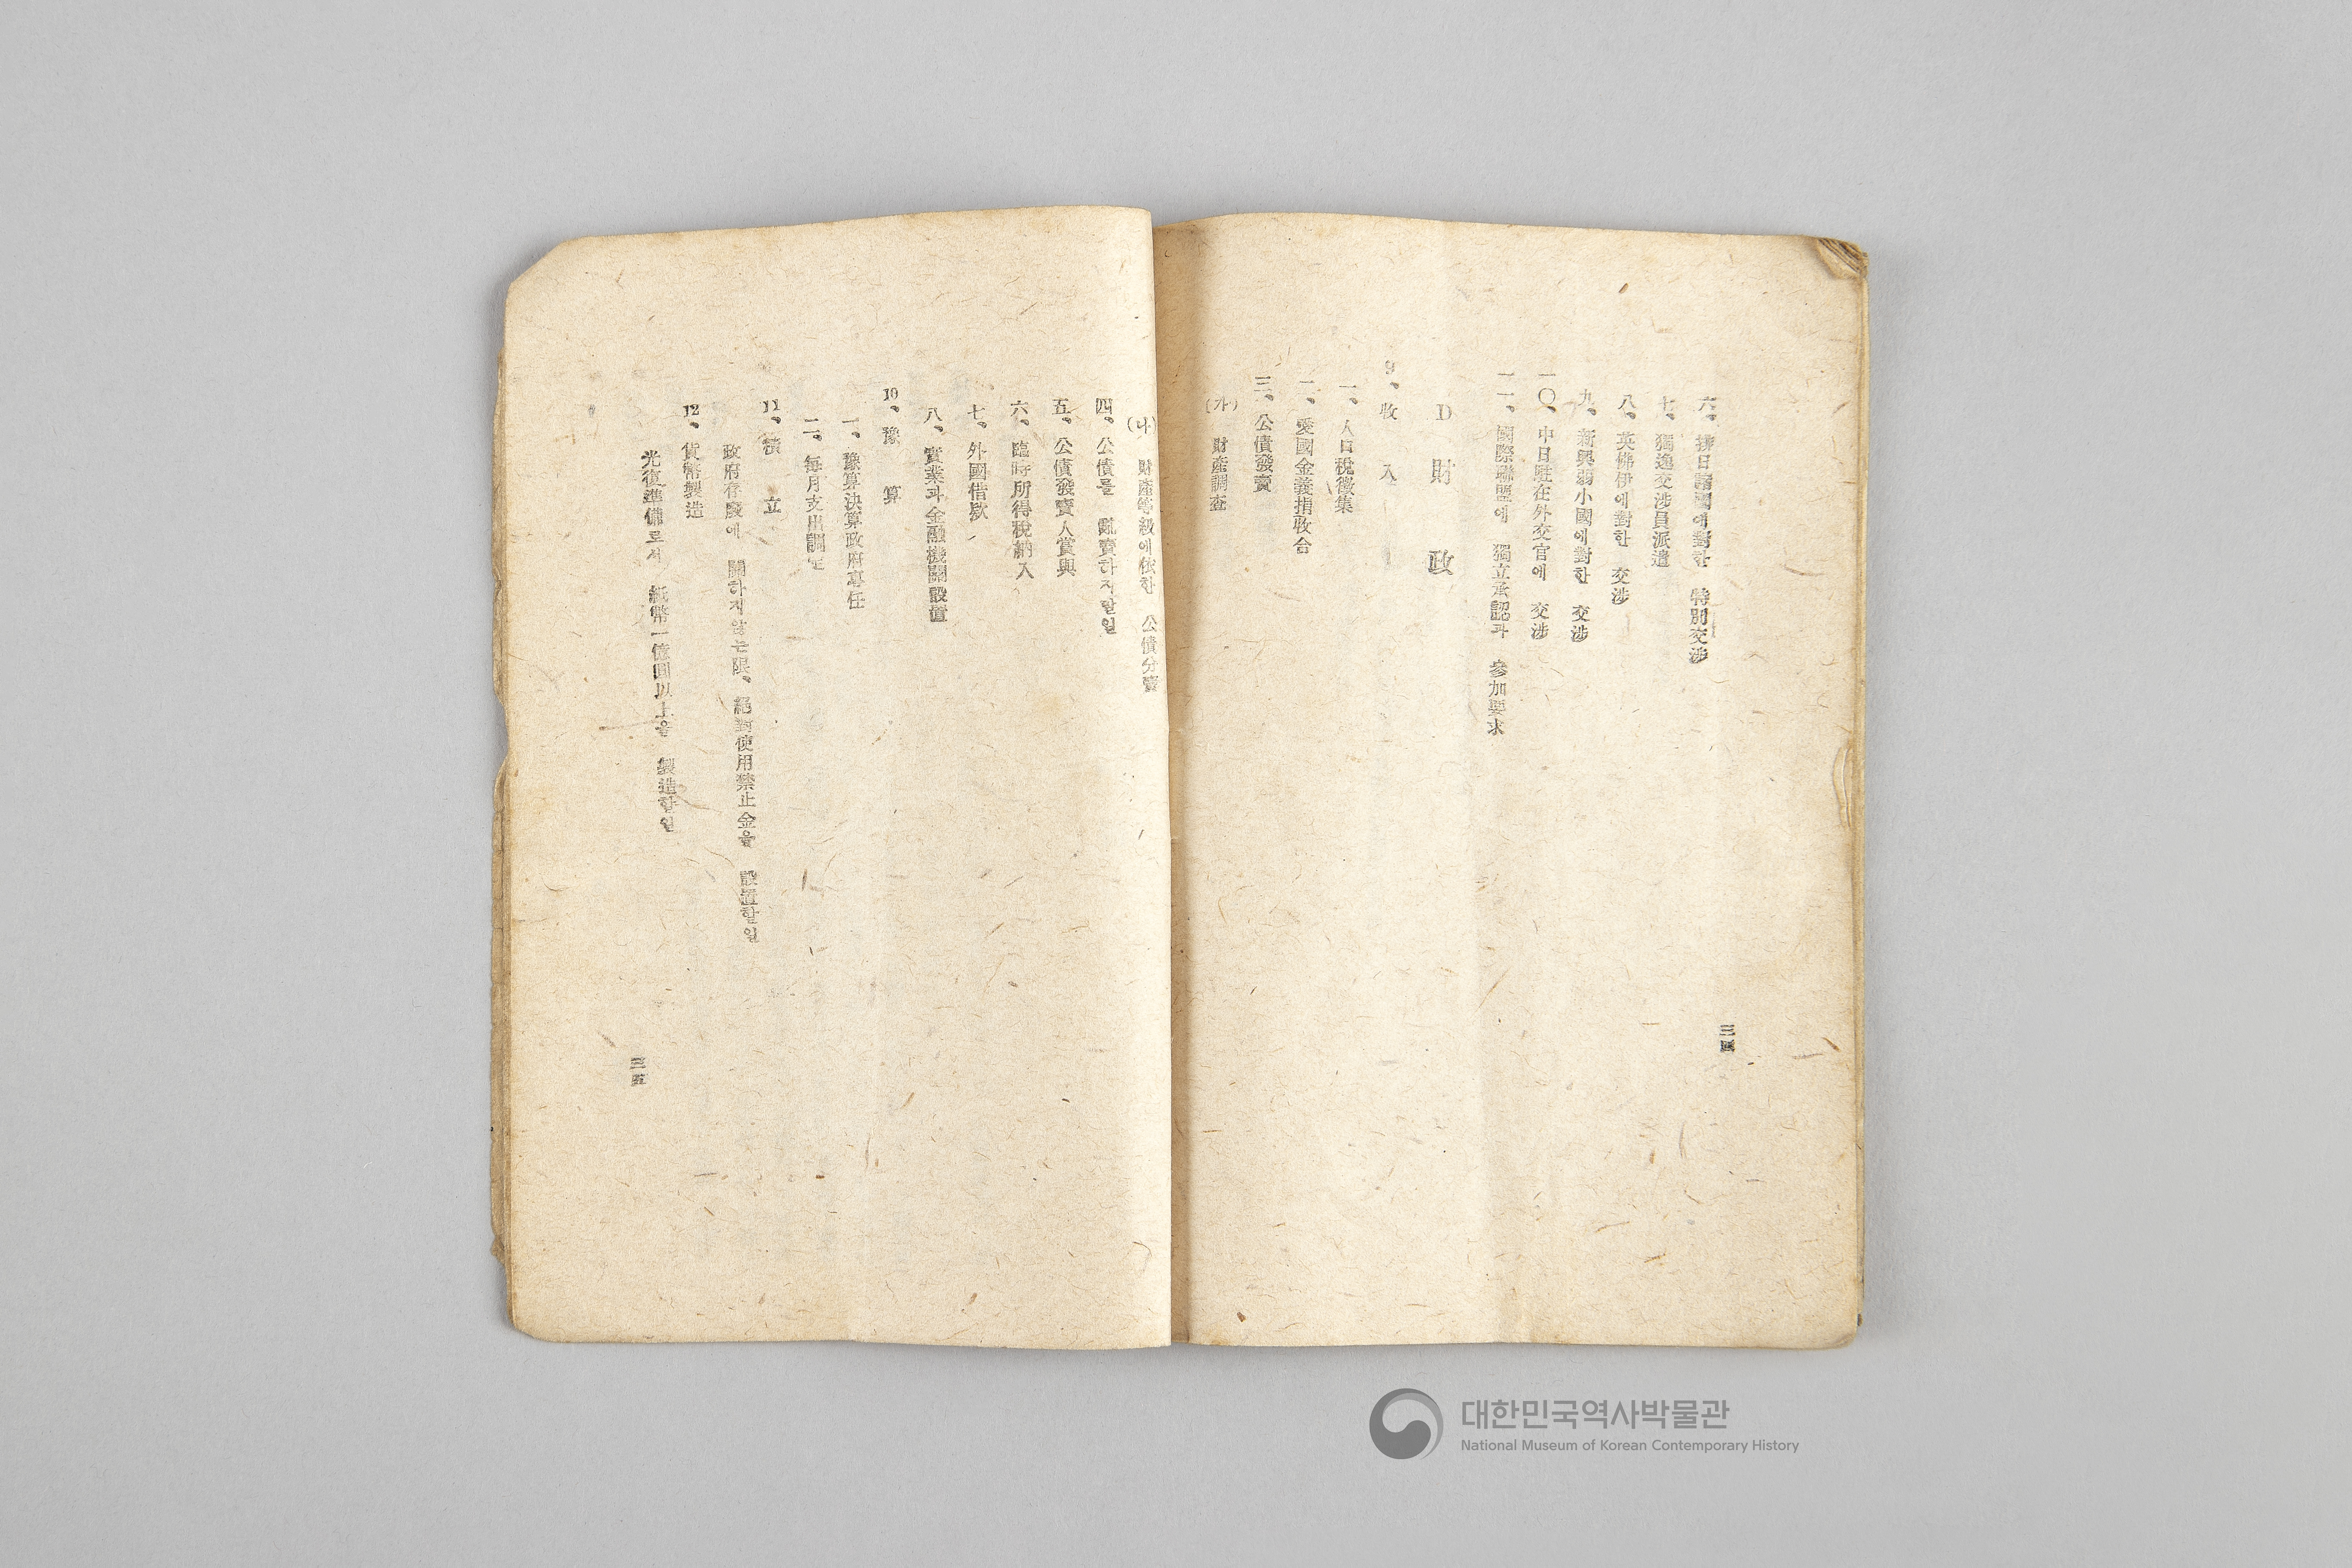 六、排日諸國에對한 特別交涉
七、獨逸交涉員派遣
八、英佛伊에對한 交涉
九、新興弱小國에對한 交涉
一〇、中日駐在外交官에 交涉
一一、國際聯盟에 獨立承認과 參加要求
D 財 政
9、收 入
一、人口稅徵集
二、愛國金義捐收合
三、公債發賣
(가) 財產調查
三四
(나) 財產等級에依한 公債分賣
四、公債를 亂賣하지말일
五、公債發賣人賞與
六、臨時所得稅納入
七、外國借款
八、實業과金融機關設置
10、豫 算
一、豫算決算政府專任
二、每月支出調定
11、積 立
政府存廢에 關하지않는限、絕對使用禁止金을 設置할일
12、貨幣製造
光復準備로서 紙幣一億圓以上을 製造할일
三五
대한민국역사박물관
National Museum of Korean Contemporary History